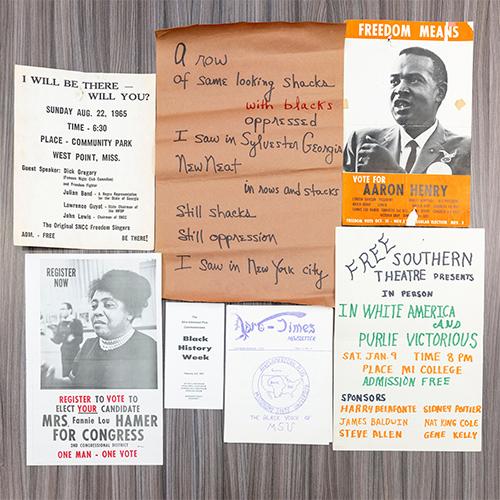 I WILL BE THERE —
WILL YOU?
SUNDAY AUG. 22, 1965
TIME - 6:30
PLACE - COMMUNITY PARK
WEST POINT, MISS.
Guest Speaker: Dick Gregory
(Famous Night Club Comedian)
and Freedom Fighter
Julian Bond - A Negro Representative
for the State of Georgia
Lawrence Guyot - State Chairman of
the MFDP
John Lewis - Chairman of SNCC
The Original SNCC Freedom Singers
ADM. - FREE BE THERE!
A row
of same looking shacks
with blacks
oppressed
I saw in Sylvester Georgia
New Neat
in rows and stacks
Still shacks
Still oppression
I saw in New York city
FREEDOM MEANS
VOTE FOR
AARON HENRY
REGISTER
NOW
REGISTER TO VOTE TO
ELECT YOUR CANDIDATE
MRS. Fannie Lou HAMER
FOR CONGRESS
2ND CONGRESSIONAL DISTRICT
ONE MAN - ONE VOTE
Black
History
Week
Afro-Times
NEWSLETTER
THE BLACK VOICE OF
MSU
FREE SOUTHERN
THEATRE PRESENTS
IN PERSON
IN WHITE AMERICA
AND
PURLIE VICTORIOUS
SAT. JAN. 9 TIME 8 PM
PLACE MI COLLEGE
ADMISSION FREE
SPONSORS
HARRY BELAFONTE SIDNEY POITIER
JAMES BALDWIN NAT KING COLE
STEVE ALLEN GENE KELLY